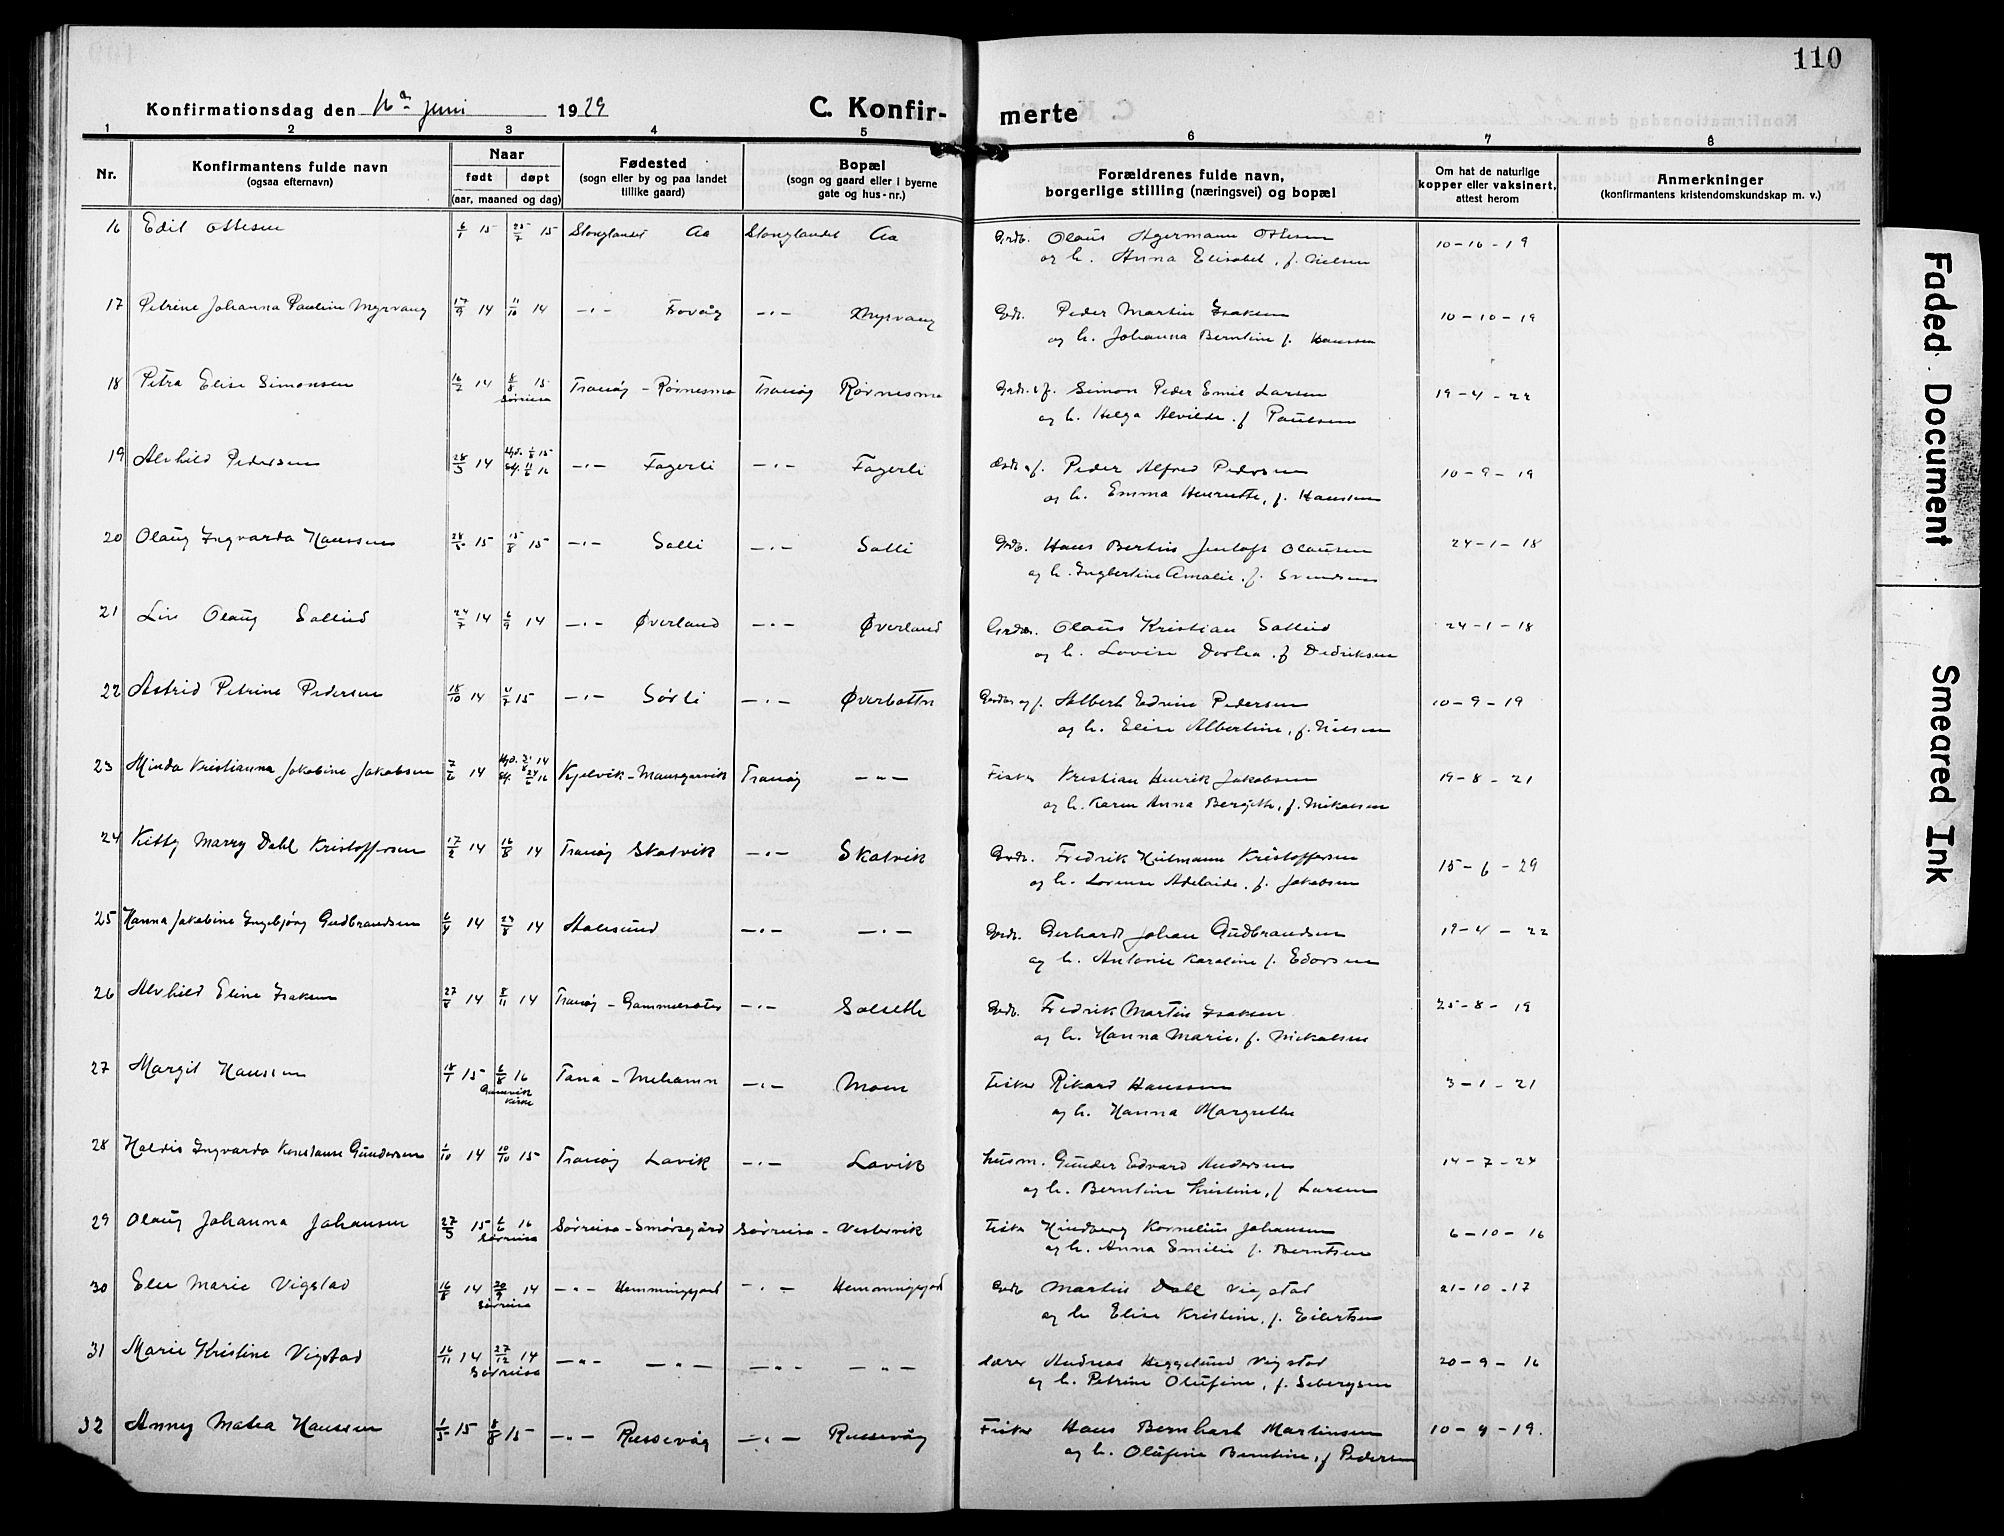 110
Konfirmationsdag den 16de juni 1929
C. Konfirmerte
1 2 3 4 5 6 7 8
Nr.
Konfirmantens fulde navn
(ogsaa efternavn)
Naar
født døpt
(aar, maaned og dag)
Fødested
(sogn eller by og paa landet
tillike gaard)
Bopæl
(sogn og gaard eller i byerne
gate og hus-nr.)
Forældrenes fulde navn,
borgerlige stilling (næringsvei) og bopæl
Om hat de naturlige
kopper eller vaksinert,
attest herom
Anmerkninger
(konfirmantens kristendomskundskap m. v.)
16 Edit Ottesen 6/1 15 25/7 15 Stonglandet Aa Stonglandet Aa Grdb. Olaus Agermann Ottesen 10-16-19
og h. Anna Elisabet, f. Nielsen
17 Petrine Johanna Pauline Myrvang 17/9 14 11/10 14 -"- Frovåg -"- Myrvang Grdb. Peder Martin Isaksen 10-10-19
og h. Johanna Berntine f. Hanssen
18 Petra Elise Simonsen 16/2 14 8/8 15 Tranøy - Rørnesmo Tranøy Rørnesmo Simon Peder Emil Larsen 19-4-22
Sørreisa
og h. Helga Alvilde f. Paulsen
19 Alvhild Pedersen 28/3 14 -"- Fagerli -"- Fagerli Peder Alfred Pedersen 10-9-19
og h. Emma Henriette, f. Hanssen
20 Olaug Ingvarda Hanssen 28/5 15 15/8 15 -"- Solli -"- Solli Grdb. Hans Bertin Jentoft Olaussen 24-1-18
og h. Ingbertine Amalie, f. Svendsen
21 Liv Olaug Sollied 24/7 14 6/9 14 -"- Øverland -"- Øverland Olaus Kristian Sollied 24-1-18
og h. Lovise Dortea f. Dedriksen
22 Astrid Petrine Pedersen 18/10 14 4/7 15 -"- Sørli -"- Øverbotten Albert Edvin Pedersen 10-9-19
og h. Elise Albertine, f. Nilsen
23 Minda Kristianna Jakobine Jakobsen 7/6 14 Kjelvik - Tranøy -"- Fisker Kristian Henrik Jakobsen 19-8-21
og h. Karen Anna Bergitte, f. Nikolsen
24 Kitty Marry Dahl Kristoffersen 17/2 14 16/8 14 Tranøy Skatvik -"- Skatvik Grdb. Fredrik Hilmann Kristoffersen 15-6-29
og h. Lorense Adelaide, f. Jakobsen
25 Hanna Jakobine Ingebjørg Gudbrandsen 6/4 14 23/8 14 Aalesund -"- -"- Grdb. Gerhardt Johan Gudbrandsen 19-4-22
og h. Antonie Karoline f. Edorsen
26 Alvhild Eline Isaksen 27/8 14 8/11 14 Tranøy - Gammelseter -"- Solseth Grdb. Fredrik Martin Isaksen 25-8-19
og h. Hanna Marie, f. Nickolsen
27 Margit Hanssen 18/1 15 6/8 16 Tana - Mehamn -"- Moen Fisker Rikard Hanssen 3-1-21
Gamvik
kirke
og h. Hanna Margrethe
28 Haldis Ingvarda Konstanse Gundersen 1/10 14 10/10 15 Tranøy Lavik -"- Lavik husm. Gunder Edvard Andersen 14-7-24
og h. Berntine Kristine, f. Larsen
29 Olaug Johanna Johansen 27/3 15 16 Sørreisa - Smørsgård Sørreisa - Vestervik Fisker Hindberg Kornelius Johansen 6-10-16
Sørreisa
og h. Anna Emilie f. Berntsen
30 Elen Marie Vigstad 16/8 14 20/9 14 -"- Hemmingsjord -"- Hemmingsjord Grdb Martin Dall Vigstad 21-10-17
Sørreisa
og h Elise Kristine, f. Eilertsen
31 Marie Kristine Vigstad 16/11 14 27/12 14 -"- -"- -"- -"- Lærer Andreas Heggelund Vigstad 20-9-16
Sørreisa
og h. Petrine Olufine, f. Sebergsen
32 Anny Matea Hanssen 1/5 15 8/8 15 -"- Russevåg -"- Russevåg Fisker Hans Bernhart Martinsen 10-9-19.
og h. Olufine Berntine, f Pedersen
Faded Document
Smeared Ink